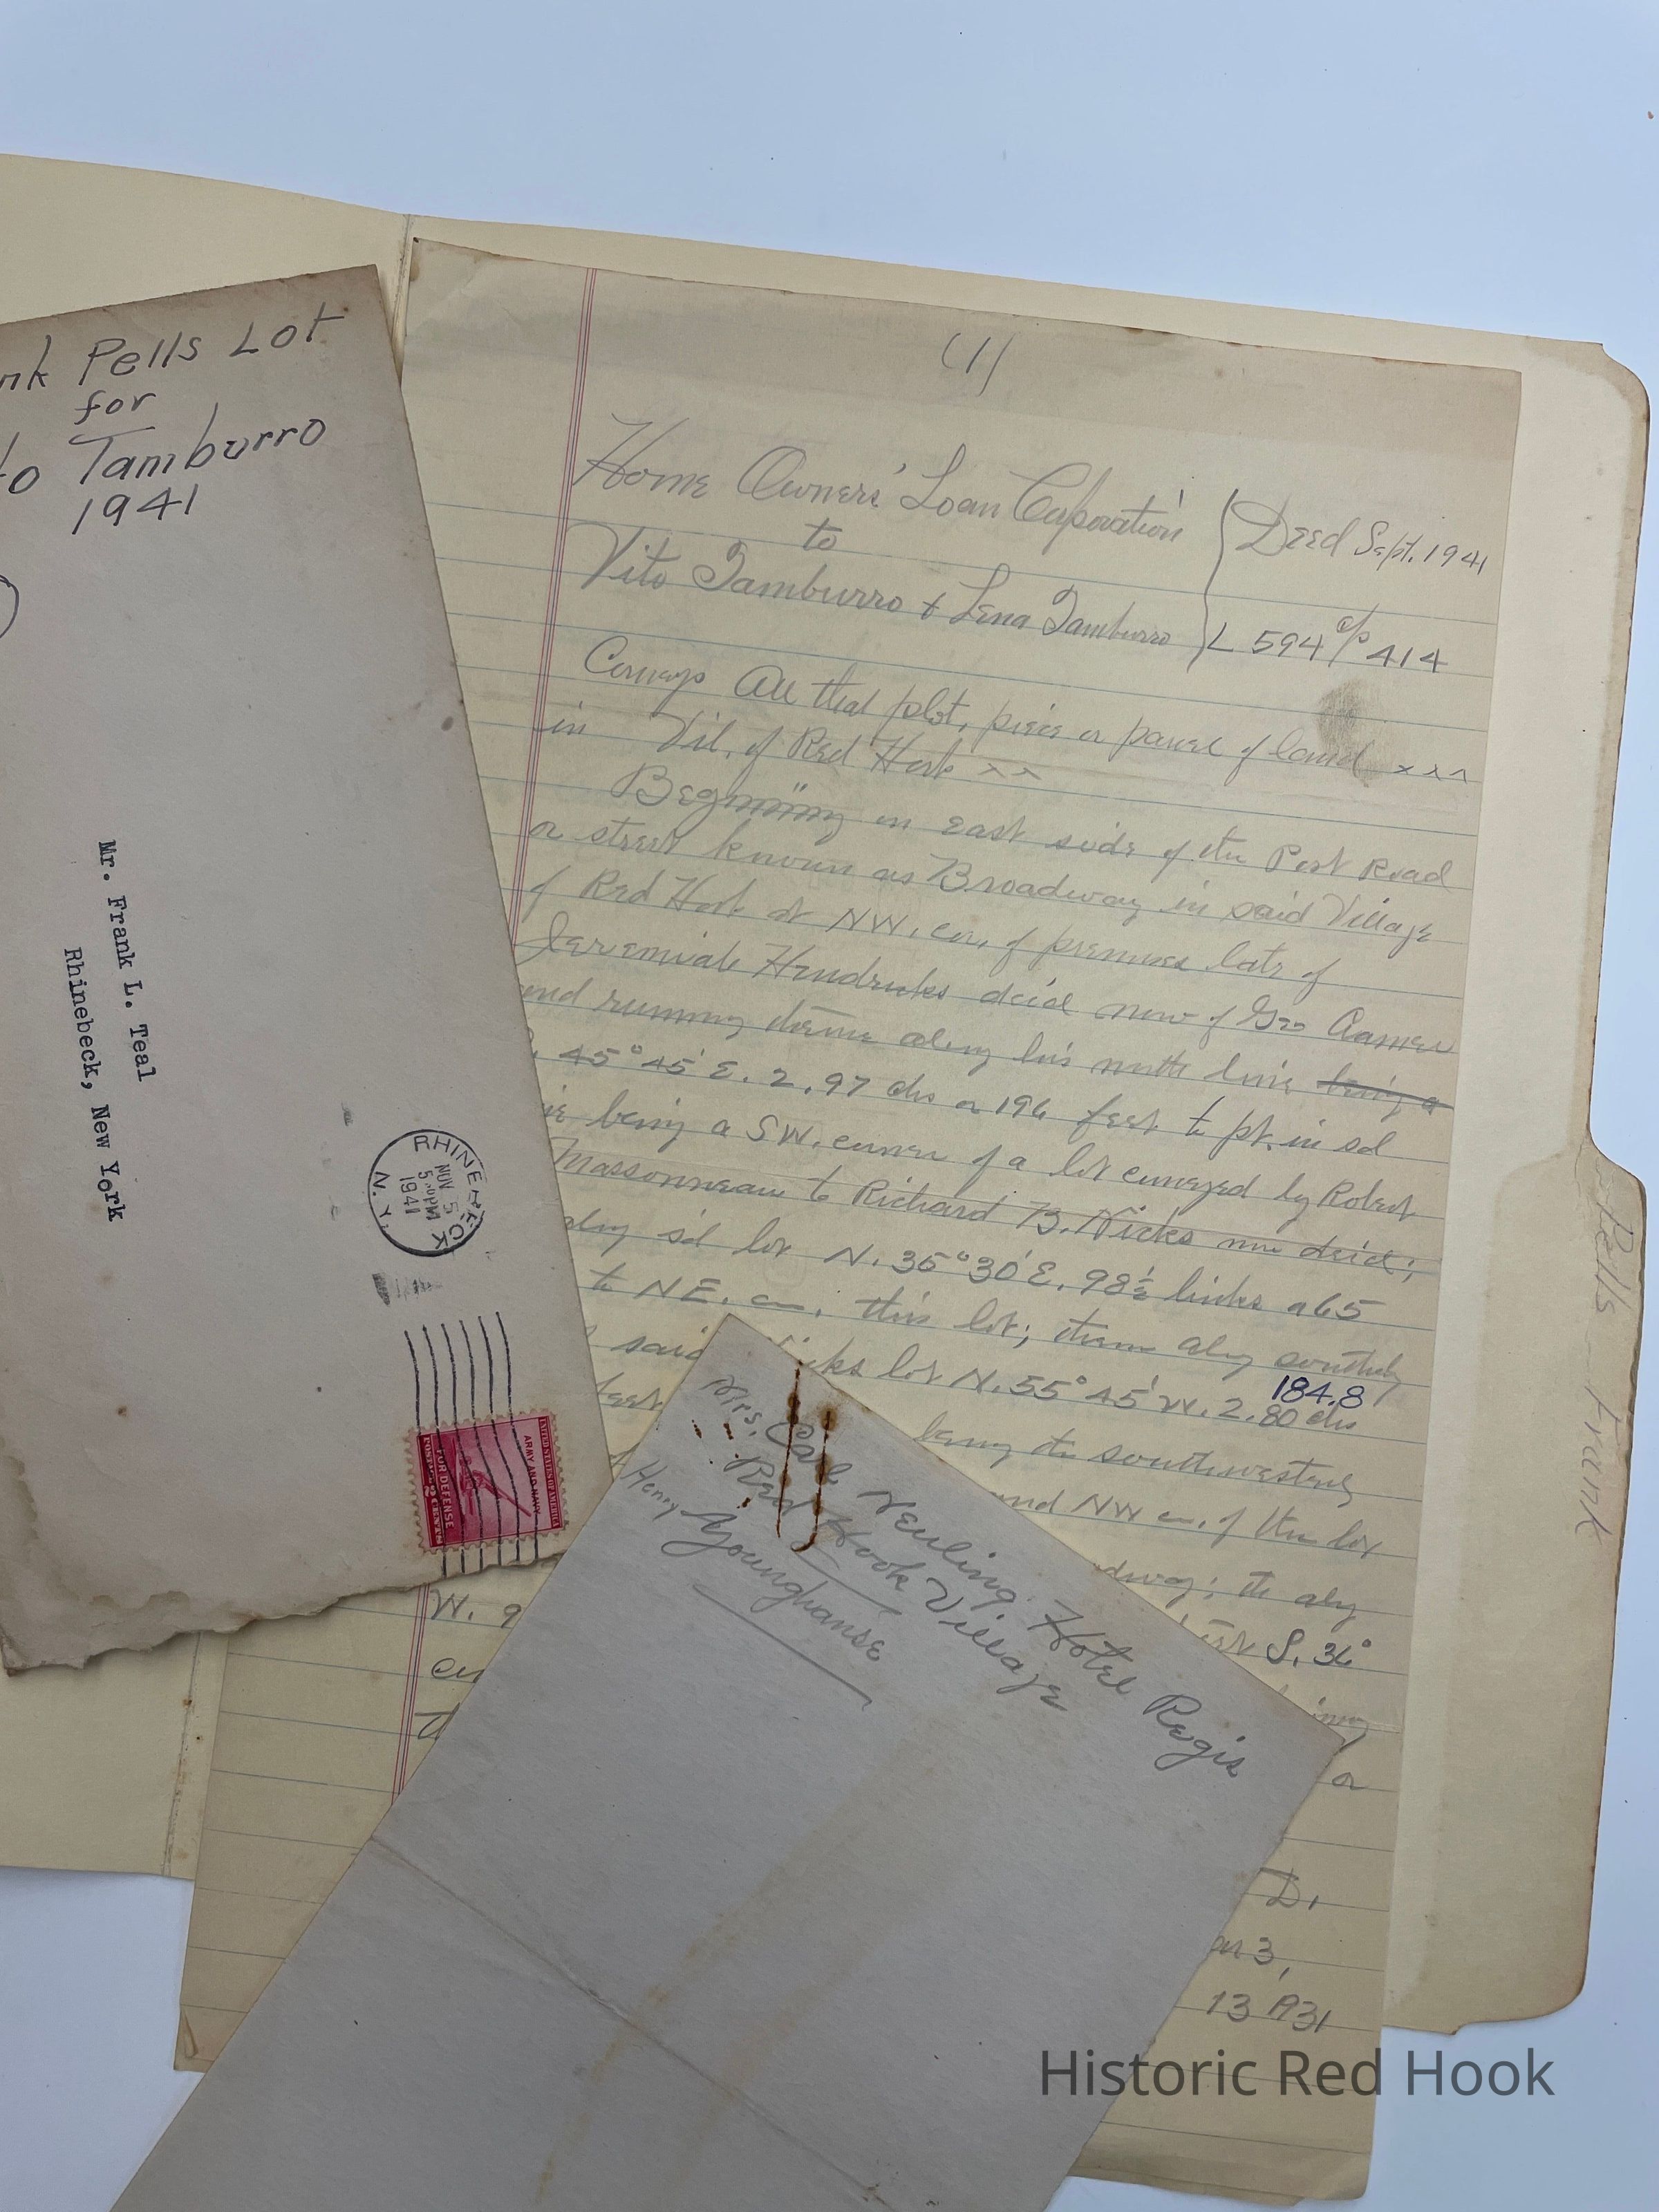 Pells Lot
for
Tamburro
1941
Mr. Frank L. Teal
Rhinebeck, New York
RHINEBECK
NOV 5
1941
N.Y.
UNITED STATES OF AMERICA
ARMY AND NAVY
FOR DEFENSE
POSTAGE 2 CENTS
(1)
Home Owners' Loan Corporation
to
Vito Tamburro & Lena Tamburro
Deed Sept. 1941
L 594 c/p 414
Conveys All that plot, piece or parcel of land xxx
in Vil. of Red Hook xx
Beginning in east side of the Post Road
or street known as Broadway in said Village
of Red Hook at NW. cor. of premises late of
Jeremiah Hendricks dec'd now of Geo
and running thence along his north line being a
45°45' E. 2.97 chs or 196 feet to pt. in sd
being a SW. corner of a lot conveyed by Robert
Massonneau to Richard B. Hicks now dec'd;
along s'd lot N. 35°30' E. 98½ links or 65
to NE. cor. this lot; thence along southerly
said Hicks lot N. 55°45' W. 2.80 chs
184.8
feet
being the southwesterly
and NW cor. of the lot
; th along
S. 36°
or
W. 9
D.
3,
13 1931
Mrs. Carl Neuling Hotel Regis
Red Hook Village
Henry Younghanse
Pells - Frank
Historic Red Hook